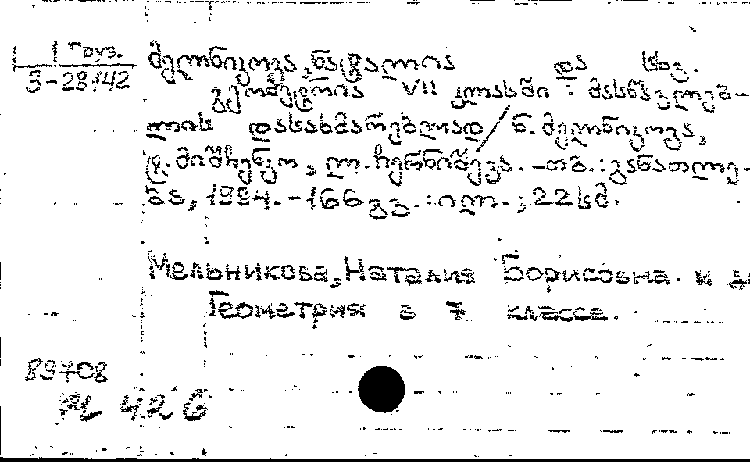 Груз.
3-28142
მელნიკოვა, ნატალია და სხვ.
გეომეტრია VII კლასში : მასწავლებ-
ლის დასახმარებლად / ნ. მელნიკოვა,
ლ. ჩერნიშევა. - თბ. : განათლე-
ბა, 1994. - 166 გვ. : ილ. ; 22 სმ.
Мельникова, Наталия Борисовна. и
Геометрия в 7 классе.
89708
426